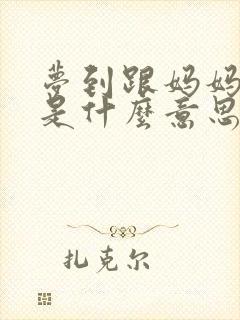 梦到跟妈妈
是什麼意思
扎克尔